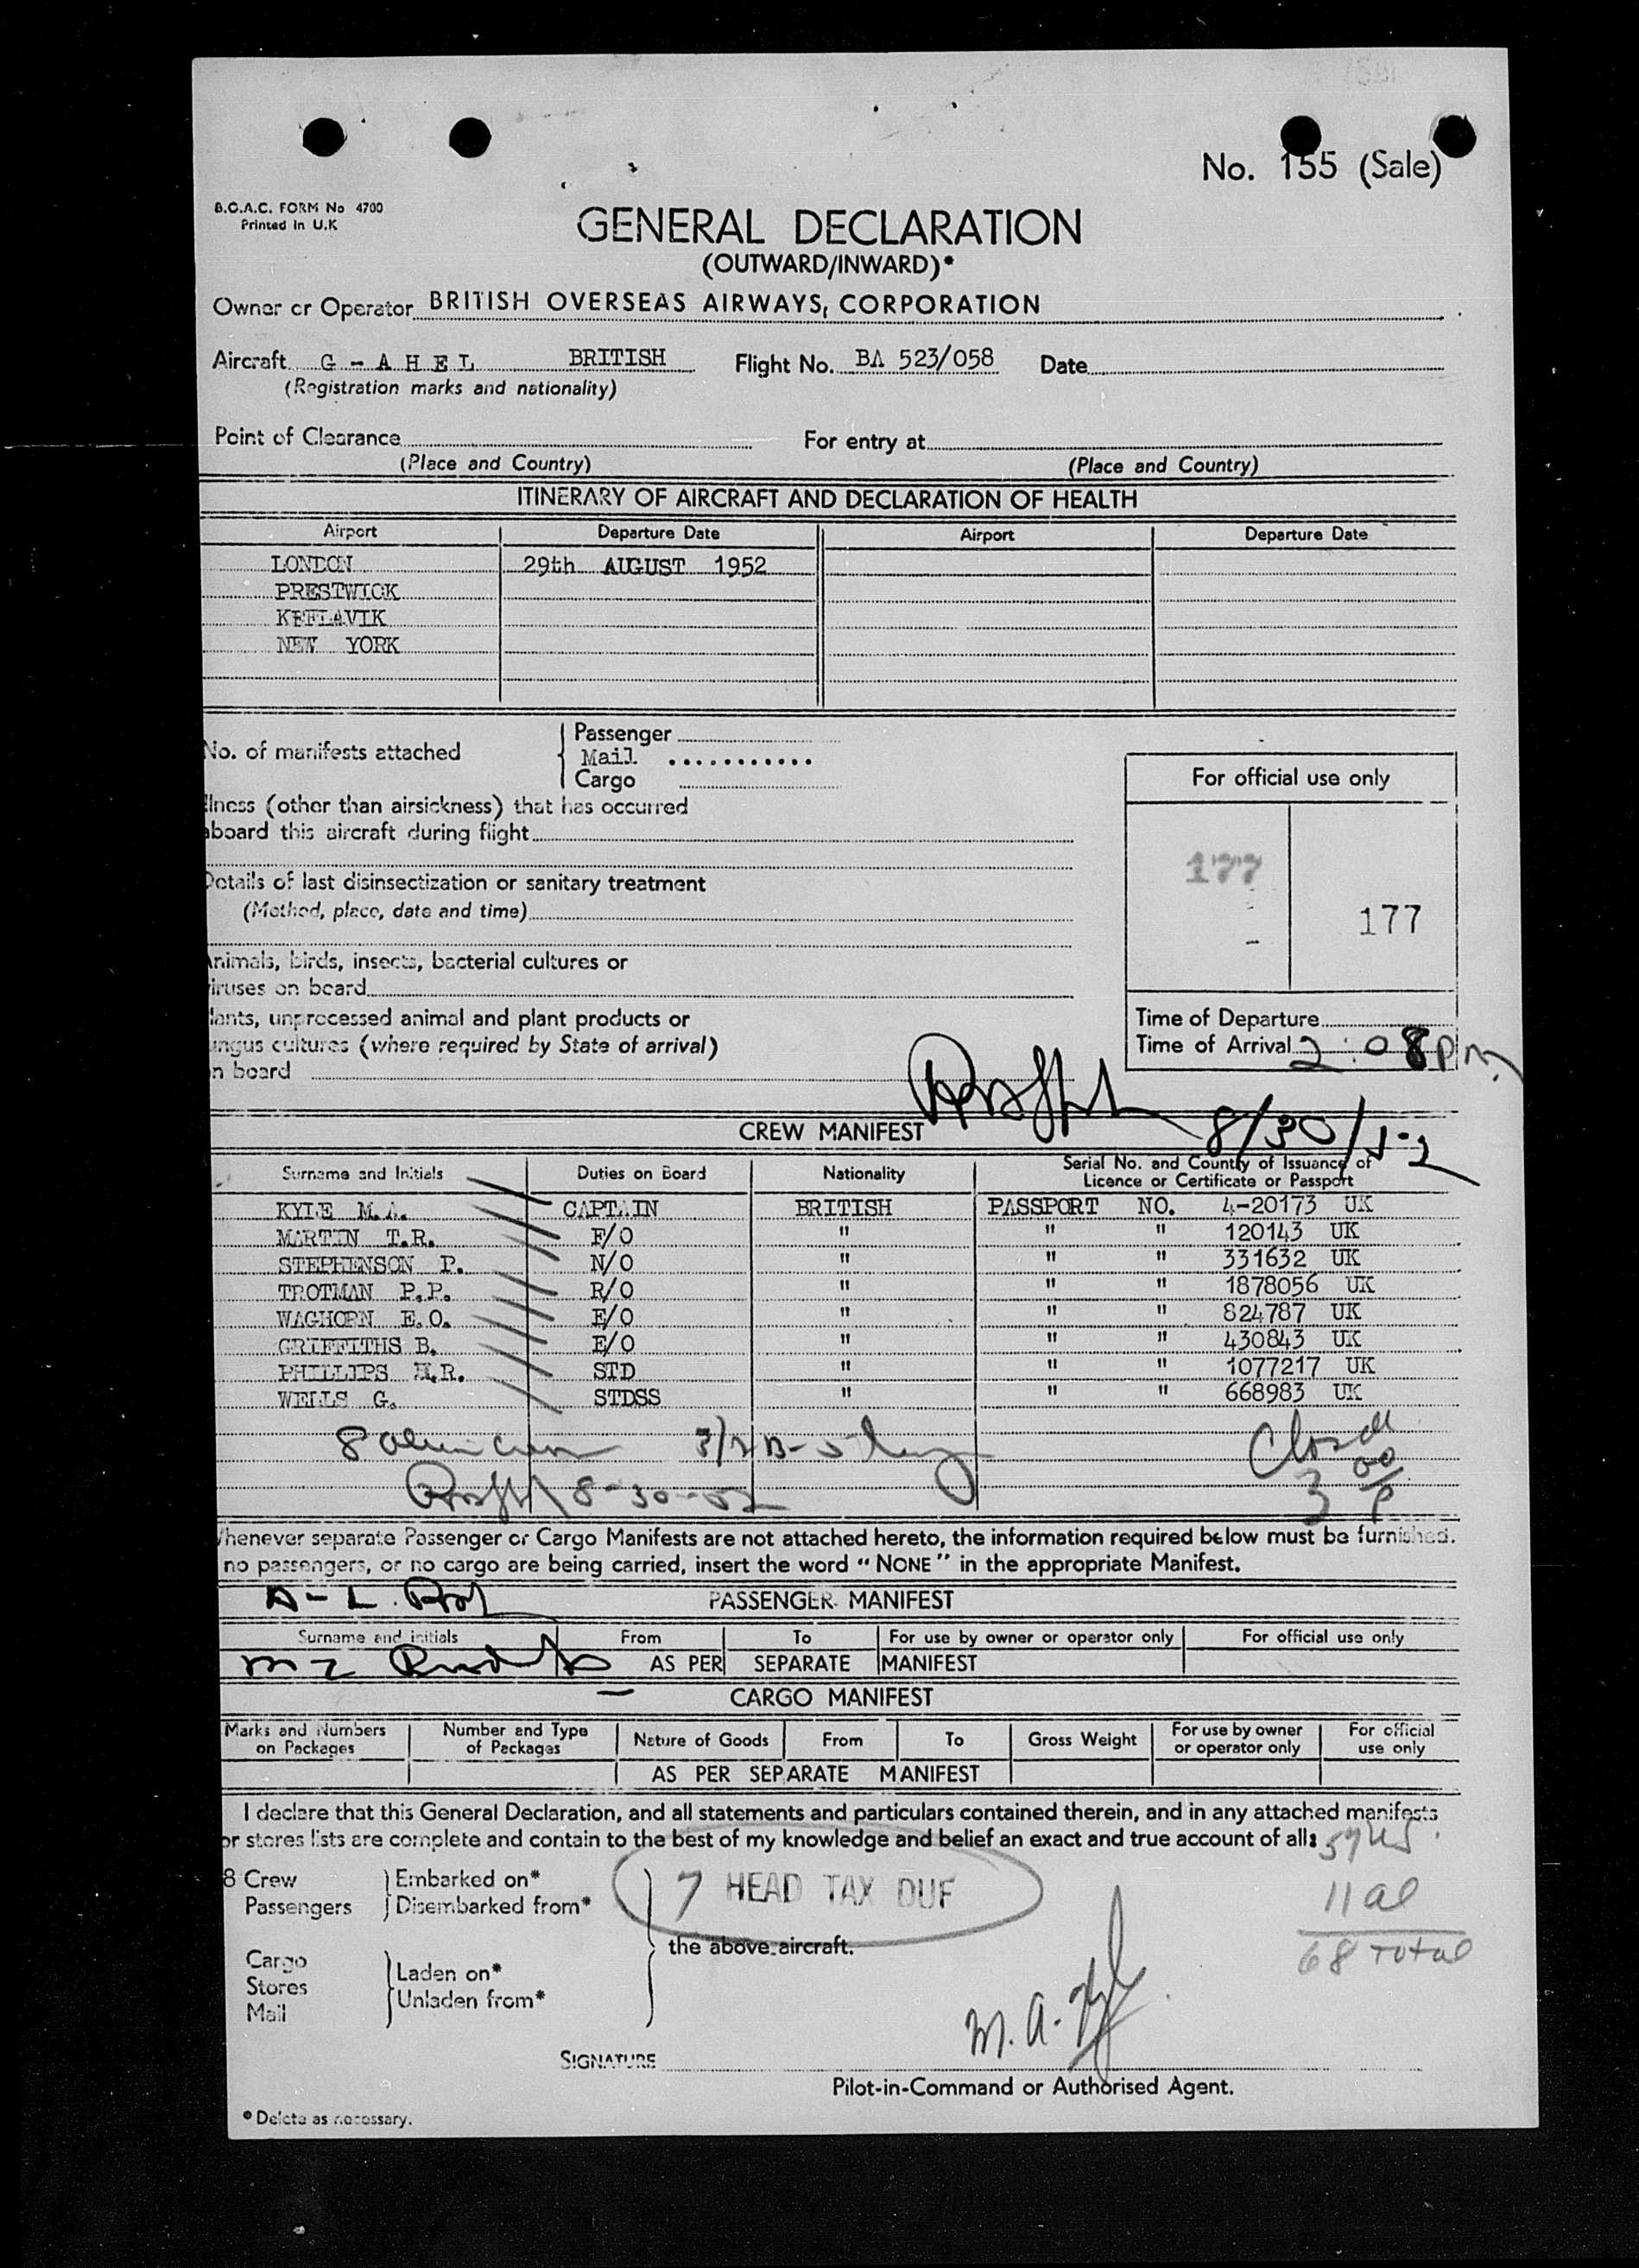 No. 155 (Sale)
B.O.A.C. FORM No 4700
Printed in U.K
GENERAL DECLARATION
(OUTWARD/INWARD)*
Owner or Operator BRITISH OVERSEAS AIRWAYS, CORPORATION
Aircraft G - A H E L BRITISH Flight No. BA 523/058 Date
(Registration marks and nationality)
Point of Clearance For entry at
(Place and Country) (Place and Country)
ITINERARY OF AIRCRAFT AND DECLARATION OF HEALTH
Airport Departure Date Airport Departure Date
LONDON 29th AUGUST 1952
PRESTWICK
KEFLAVIK
NEW YORK
No. of manifests attached
Passenger
Mail
Cargo
For official use only
llness (other than airsickness) that has occurred
aboard this aircraft during flight
177
Details of last disinsectization or sanitary treatment
(Method, place, date and time)
177
Animals, birds, insects, bacterial cultures or
viruses on board
lants, unprocessed animal and plant products or
ungus cultures (where required by State of arrival)
n board
Time of Departure
Time of Arrival 2:08 pm
8/30/52
CREW MANIFEST
Surname and Initials Duties on Board Nationality Serial No. and Country of Issuance of Licence or Certificate or Passport
KYLE M.A. CAPTAIN BRITISH PASSPORT NO. 4-20173 UK
MARTIN T.R. F/O " " " 120143 UK
STEPHENSON P. N/O " " " 331632 UK
TROTMAN P.P. R/O " " " 1878056 UK
WAGHORN E.O. E/O " " " 824787 UK
GRIFFITHS B. E/O " " " 430843 UK
PHILLIPS H.R. STD " " " 1077217 UK
WELLS G. STDSS " " " 668983 UK
8 alien crew
8-30-52
Closed
3 00/P
Whenever separate Passenger or Cargo Manifests are not attached hereto, the information required below must be furnished.
no passengers, or no cargo are being carried, insert the word "NONE" in the appropriate Manifest.
PASSENGER MANIFEST
Surname and initials From To For use by owner or operator only For official use only
AS PER SEPARATE MANIFEST
CARGO MANIFEST
Marks and Numbers on Packages Number and Type of Packages Nature of Goods From To Gross Weight For use by owner or operator only For official use only
AS PER SEPARATE MANIFEST
I declare that this General Declaration, and all statements and particulars contained therein, and in any attached manifests
or stores lists are complete and contain to the best of my knowledge and belief an exact and true account of all:
57 US
8 Crew Embarked on*
Passengers Disembarked from*
7 HEAD TAX DUE
11 al
68 Total
the above aircraft.
Cargo
Stores
Mail
Laden on*
Unladen from*
M. A. Kyle
SIGNATURE
Pilot-in-Command or Authorised Agent.
* Delete as necessary.